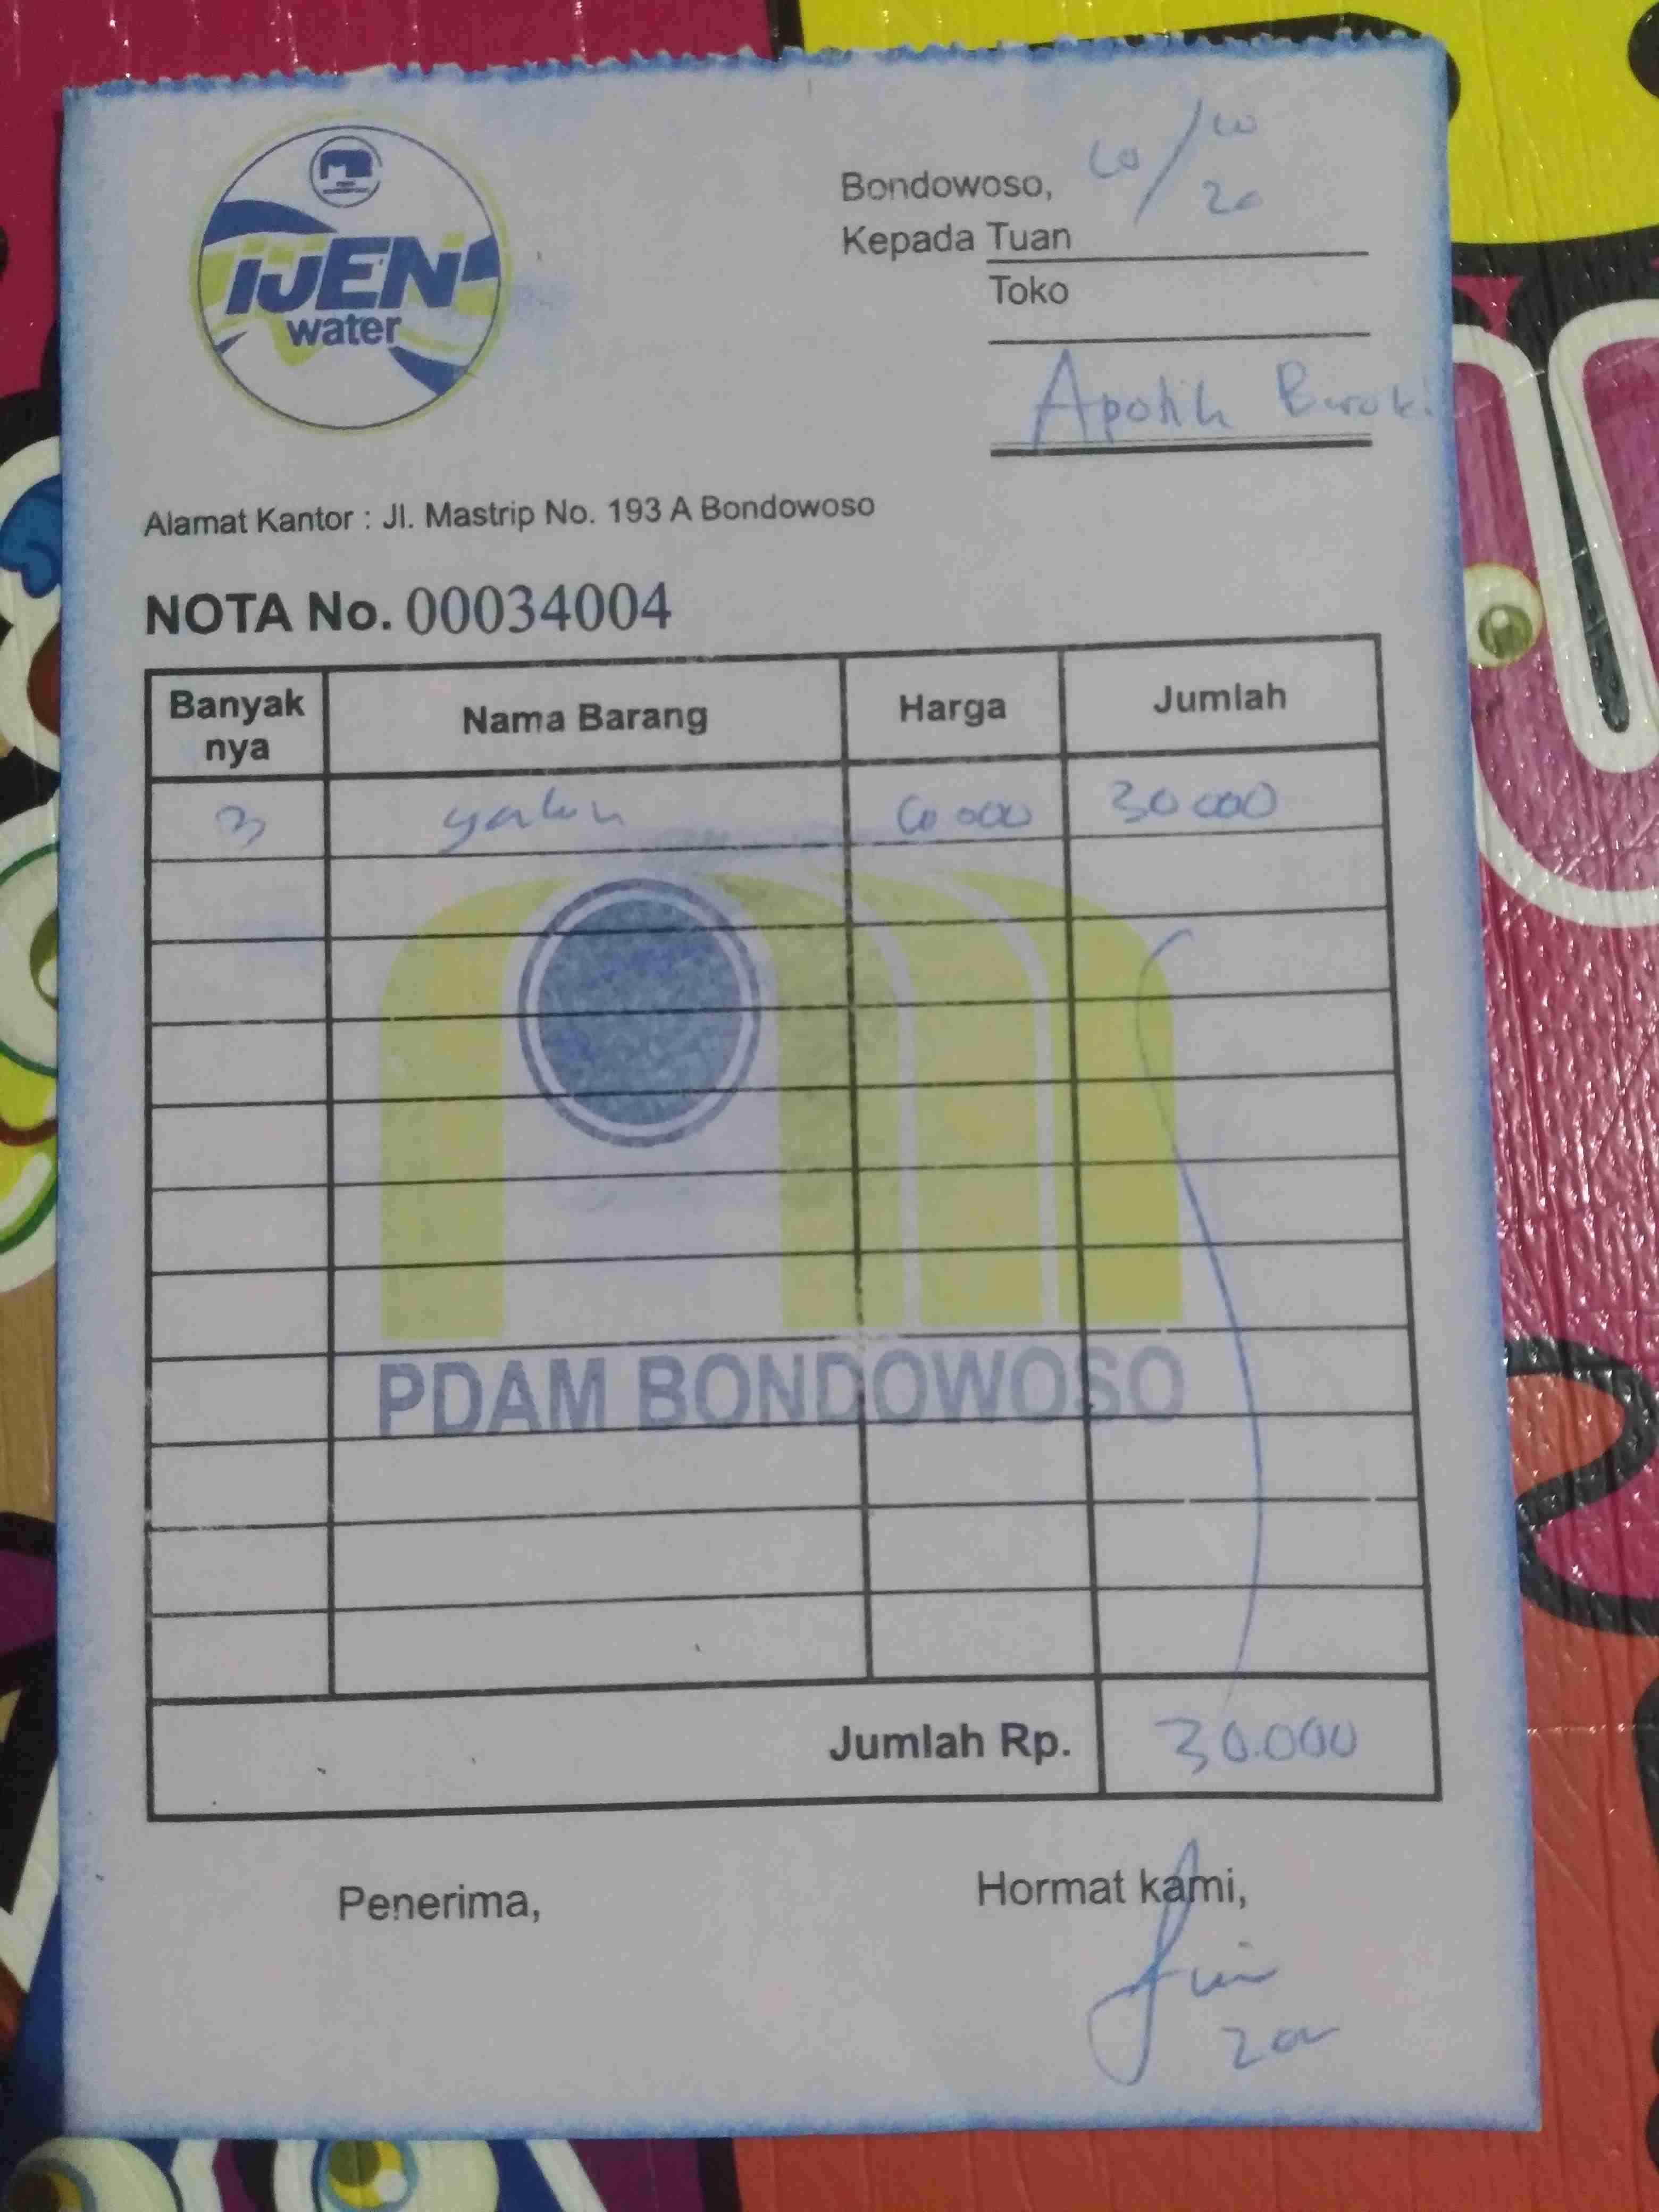 IJEN
water
Bondowoso, 10/10
20
Kepada Tuan
Toko
Apotik
Alamat Kantor : Jl. Mastrip No. 193 A Bondowoso
NOTA No. 00034004
Banyak nya Nama Barang Harga Jumlah
3 galon 10 000 30 000
PDAM BONDOWOSO
Jumlah Rp. 30.000
Penerima, Hormat kami,